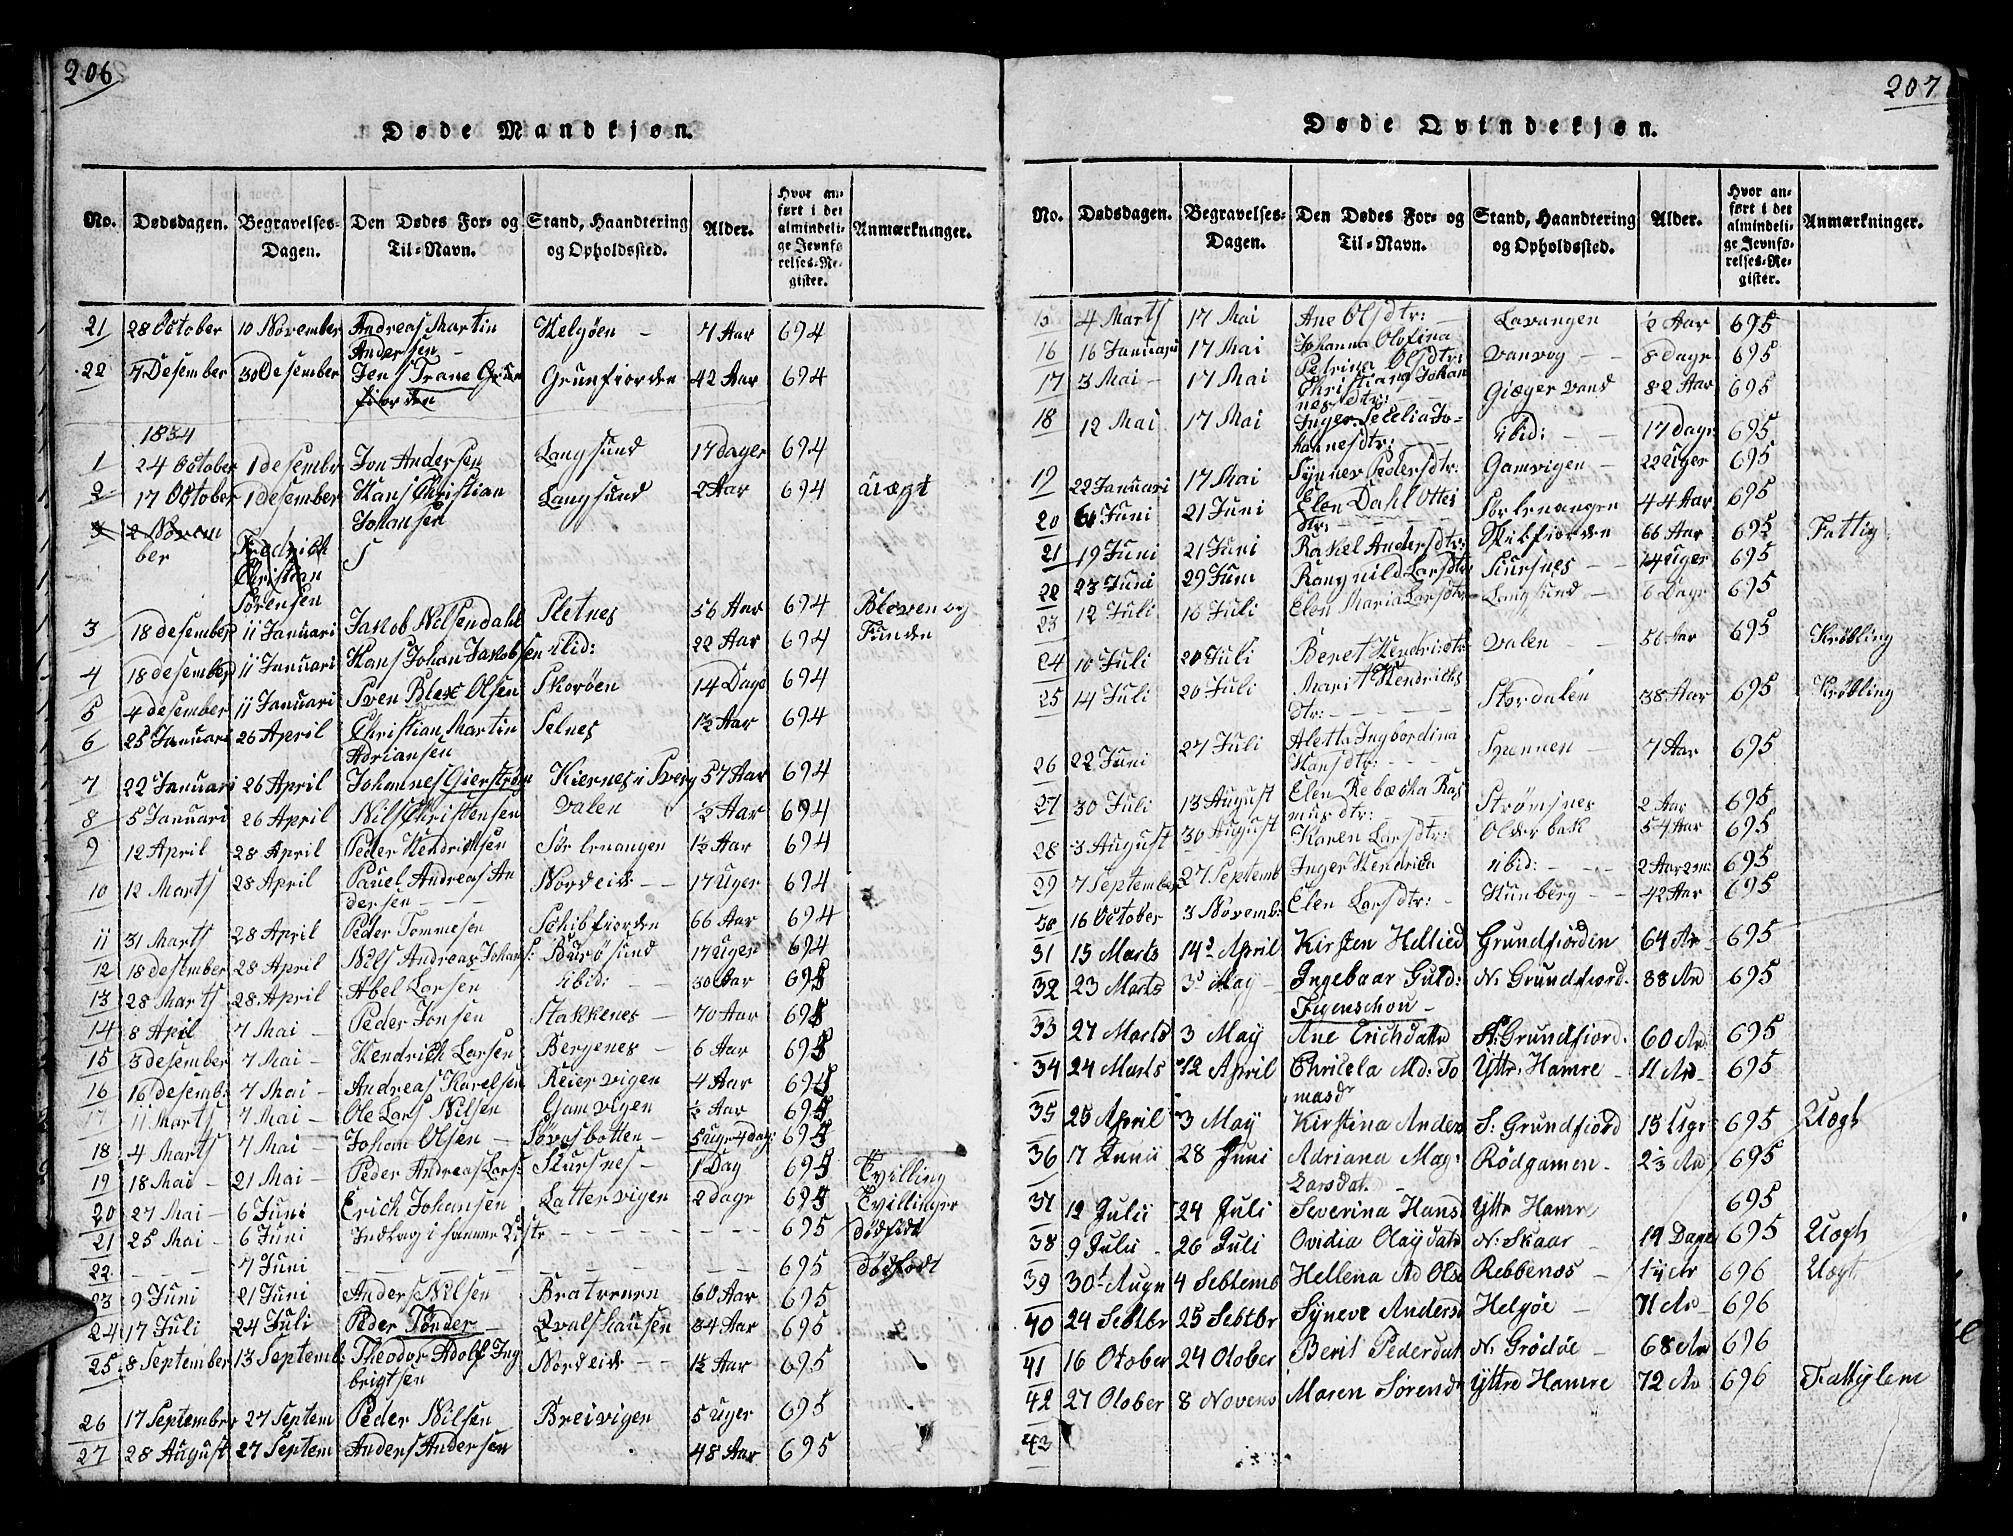 206
Døde Mandkjøn.
No. Dødsdagen. Begravelses-Dagen. Den Dødes For- og Til-Navn. Stand, Haandtering og Opholdssted. Alder. Hvor anført i det almindelige Jevnførelses-Register. Anmærkninger.
21 28 October 10 November Andreas Martin Andersen Helgøen 7 Aar 694
22 7 Desember 30 Desember Jens Trane Grunfiorden Grunfiorden 42 Aar 694
1834
1 24 October 1 desember Jon Andersen Langsund 17 dager 694
2 17 October 1 desember Hans Christian Johansen Langsund 2 Aar 694 uægt
3 2 November Fredrich Christian Sørensen
3 18 desember 11 Januari Jakob Nilsen dahl Sletnes 56 Aar 694 Bleven og Funden
4 18 desember 11 Januari Hans Johan Jakobsen ibid: 22 Aar 694
5 4 desember 11 Januari Sven Olsen Skorøen 14 Dage 694
6 25 Januari 26 April Christian Martin Adriansen Selnes 1½ Aar 694
7 22 Januari 26 April Johannes Gierstrøm Kiernes i Sverg 57 Aar 694
8 5 Januari 26 April Nils Christensen Valen ½ Aar 694
9 12 April 28 April Peder Hendriksen Sørlenangen 1½ Aar 694
10 12 Marts 28 April Pauel Andreas Andersen Nordeid 17 Uger 694
11 31 Marts 28 April Peder Tommesen Schibfiorden 66 Aar 694
12 18 desember 28 April Nils Andreas Johans: Burøsund 17 uger 694
13 28 Marts 28 April Abel Larsen ibid: 30 Aar 695
14 8 April 7 Mai Peder Jonsen Stakkenes 70 Aar 695
15 3 desember 7 Mai Hendrich Larsen Bergenes 6 Aar 695
16 16 desemb: 7 Mai Andreas Karelsen Reiervigen 4 Aar 695
17 11 Marts 7 Mai Ole Lars Nilsen Gamvigen ½ Aar 695
18 4 Marts 7 Mai Johan Olsen Søvasbotten 5 uger 4 dag: 695
19 18 Mai 21 Mai Peder Andreas Lars: Skursnes 1 Dag 695 Tvilling
20 27 Mai 6 Juni Erich Johansen Lattervigen 2 dage 695 Tvillinger
21 25 Mai 6 Juni Indlag i samme Kiste 695 dødfødt
22 7 Juni 695 dødfødt
23 9 Juni 21 Juni Anders Nilsen Bratrenen 60 Aar 695
24 17 Juli 24 Juli Peder Tønder Qvalshausen 34 Aar 695
25 8 September 13 Septemb: Theodor Adolf Ingbrigtsen Nordeid 1½ Aar 695
26 17 September 27 Septem Peder Nilsen Breivigen 5 uger 695
27 28 August 27 Septem Anders Andersen 48 Aar 695
207
Døde Qvindekjøn.
No. Dødsdagen. Begravelses-Dagen. Den Dødes For- og Til-Navn. Stand, Haandtering og Opholdssted. Alder. Hvor anført i det almindelige Jevnførelses-Register. Anmærkninger.
15 4 Marts 17 Mai Ane Olsdtr: Lavangen ½ Aar 695
16 16 Januari 17 Mai Johanna Olofina Petrina Olsdtr: Vanvog 8 dage 695
17 3 Mai 17 Mai Christiana Johannesdtr: Giæger vand 82 Aar 695
18 12 Mai 17 Mai Inger Secelia Johannesdtr: ibid: 17 dage 695
19 22 Januari 17 Mai Synnev Pedersdtr: Gamvigen 22 uger 695
20 6 Juni 21 Juni Elen Dahl Ottesdtr: Sørlenangen 44 Aar 695
21 19 Juni 21 Juni Rakel Andersdtr: Skibfiorden 66 Aar 695 Fattig
22 23 Juni 29 Juni Rangnild Larsdtr Skursnes 14 uger 695
23 12 Juli 16 Juli Elen Maria Larsdtr Langsund 6 Dage 695
24 10 Juli 20 Juli Beret Hendri:dtr Valen 56 Aar 695 Krøbling
25 14 Juli 20 Juli Marit Hendrichsdtr: Stordalen 38 Aar 695 Krøbling
26 22 Juni 27 Juli Aletta Ingbordina Hansdtr: Spennen 7 Aar 695
27 30 Juli 13 August Elen Rebæcka Rasmusdtr: Strømsnes 2 Aar 695
28 3 August 30 August Karen Larsdtr: Olderbak 54 Aar 695
29 7 September 27 Septemb Inger Hendrica ibid: 2 Aar 2 m: 695
30 16 October 3 Novemb: Elen Larsdtr: Hunberg 42 Aar 695
31 15 Marts 14 April Kirsten Hellied Grundfiorden 64 Ar 695
32 23 Marts 3 May Ingebaar Guld: Figenschou N: Grundfiord 88 Ar 695
33 27 Marts 3 May Ane Erichdattr S: Grundfiord 60 Ar 695
34 24 Marts 12 April Chricela Md: Tomasd Yttr: Hamre 11 Ar 695
35 25 April 3 May Kirstina Anders S: Grundfiord 15 Ugr 695 Uægt
36 17 Junii 28 Juni Adriana Mag: Larsdat. Rødgamen 2⅓ Ar 695
37 12 Julii 24 Juli Severina Hans Yttr Hamre 695
38 9 Julii 26 Juli Ovidia Olaÿdatr N: Skaar 14 Dage 695 Uægt
39 30 Augu 4 Sebtemb Hellena Ad Olsd Rebbenes 696 Uægt
40 24 Sebtbr 25 Sebtbr Syneve Andersd Helgøe 71 Ar 696
41 16 Otober 24 Otober Berit Pederdat N: Grødøe 68 Ar 696
42 27 Otober 8 Novemb Maren Sørend Yttre Hamre 72 Ar 696 Fattiglem
43